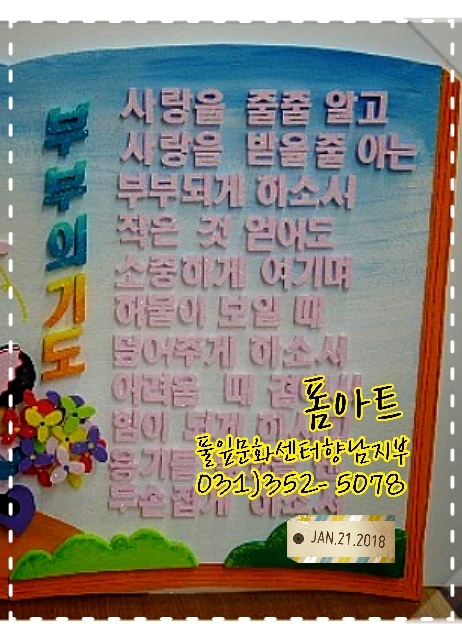 부부의기도
사랑을 줄줄 알고
사랑을 받을줄 아는
부부되게 하소서
작은 것 얻어도
소중하게 여기며
허물이 보일 때
덮어주게 하소서
어려울 때
힘이 되게
용기를
두손잡게 하소서
폼아트
풀잎문화센터향남지부
031)352-5078
JAN.21.2018